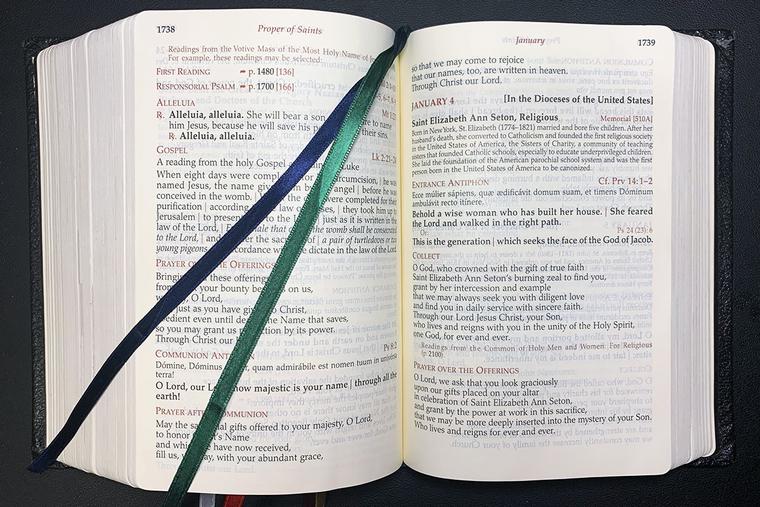 1738
Proper of Saints
Readings from the Votive Mass of the Most Holy Name of
For example, these readings may be selected:
First Reading ➨ p. 1480 [136]
Responsorial Psalm ➨ p. 1700 [166]
Alleluia
℟. Alleluia, alleluia. She will bear a son
him Jesus, because he will save his their sins.
℟. Alleluia, alleluia.
Gospel Lk 2:21-24
A reading from the holy Gospel Luke
When eight days were circumcision, | he was
named Jesus, the name given angel | before he was
conceived in the womb. were completed for their
purification | according law of Moses, | they took him up to
Jerusalem | to present to the | just as it is written in the
law of the Lord, | that opens the womb shall be consecrated
to the Lord, | and offer the sacrifice of | a pair of turtledoves or two
young pigeons, accordance with the dictate in the law of the Lord.
Prayer over the Offerings
Bringing these offerings
from your bounty on us,
O Lord,
just as you have given to Christ,
obedient even until death, the Name that saves,
so you may grant us protection by its power.
Through Christ our
Communion Antiphon Ps 8:2
Dómine, Dóminus noster, quam admirábile est nomen tuum in univérsa
terra!
O Lord, our Lord, how majestic is your name | through all the
earth!
Prayer after Communion
May the sacrificial gifts offered to your majesty, O Lord,
to honor Christ's Name
and which we have now received,
fill us, we pray, with your abundant grace,
January
1739
so that we may come to rejoice
that our names, too, are written in heaven.
Through Christ our Lord.
JANUARY 4 [In the Dioceses of the United States]
Saint Elizabeth Ann Seton, Religious Memorial [510A]
Born in New York, St. Elizabeth (1774–1821) married and bore five children. After her
husband's death, she converted to Catholicism and founded the first religious society
in the United States of America, the Sisters of Charity, a community of teaching
sisters that founded Catholic schools, especially to educate underprivileged children.
She laid the foundation of the American parochial school system and was the first
person born in the United States of America to be canonized.
Entrance Antiphon Cf. Prv 14:1-2
Ecce múlier sápiens, quæ ædificávit domum suam, et timens Dóminum
ambulávit recto itínere.
Behold a wise woman who has built her house. | She feared
the Lord and walked in the right path.
Or: Ps 24 (23): 6
This is the generation | which seeks the face of the God of Jacob.
Collect
O God, who crowned with the gift of true faith
Saint Elizabeth Ann Seton's burning zeal to find you,
grant by her intercession and example
that we may always seek you with diligent love
and find you in daily service with sincere faith.
Through our Lord Jesus Christ, your Son,
who lives and reigns with you in the unity of the Holy Spirit,
one God, for ever and ever.
Readings from the Common of Holy Men and Women: For Religious
(p. 2100).
Prayer over the Offerings
O Lord, we ask that you look graciously
upon our gifts placed on your altar
in celebration of Saint Elizabeth Ann Seton,
and grant by the power at work in this sacrifice,
that we may be more deeply inserted into the mystery of your Son.
Who lives and reigns for ever and ever.